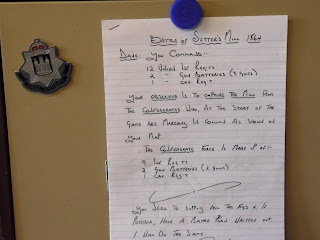 Battle of Sutter's Mill 1864
Dave:- You Command:-
12 Union Inf Regts
2 - Gun Batteries (3 guns)
1 - Cav Reg't
Your objective is to capture the Mill from
the Confederates who, at the start of the
game are marching in column as shown on
your map.
The Confederate force is made up of:-
9 Inf Reg'ts
2 Gun Batteries (2 guns)
1 Cav Reg't
You seem to all the Ads x is
possible, have a battle plan written out.
I will do the same.